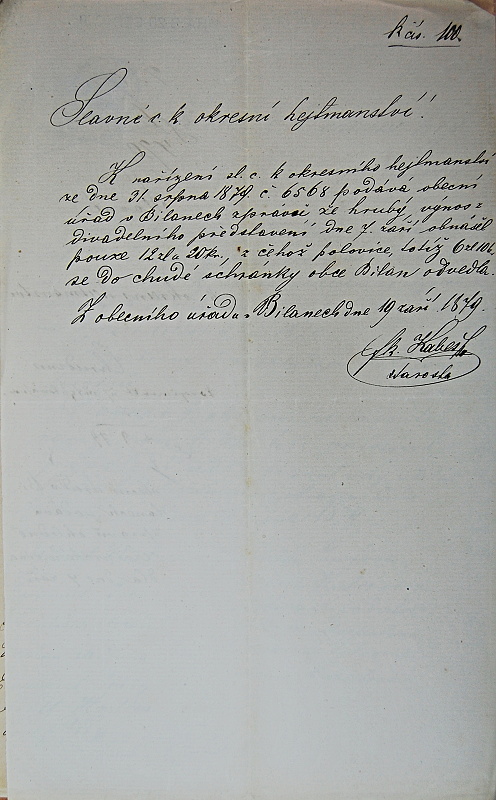 k čís. 100.
Slavné c. k. okresní hejtmanství!
K nařízení sl. c. k. okresního hejtmanství
ze dne 31. srpna 1879. č. 6568 podává obecní
úřad v Bilanech zprávu že hrubý výnos z
divadelního představení dne 7. září obnášel
pouze 12 zl a 20 kr., z čehož polovice, totiž 6 zl 10 k.
se do chudé schránky obce Bilan odvedla.
Z obecního úřadu v Bilanech dne 19 září 1879.
starosta